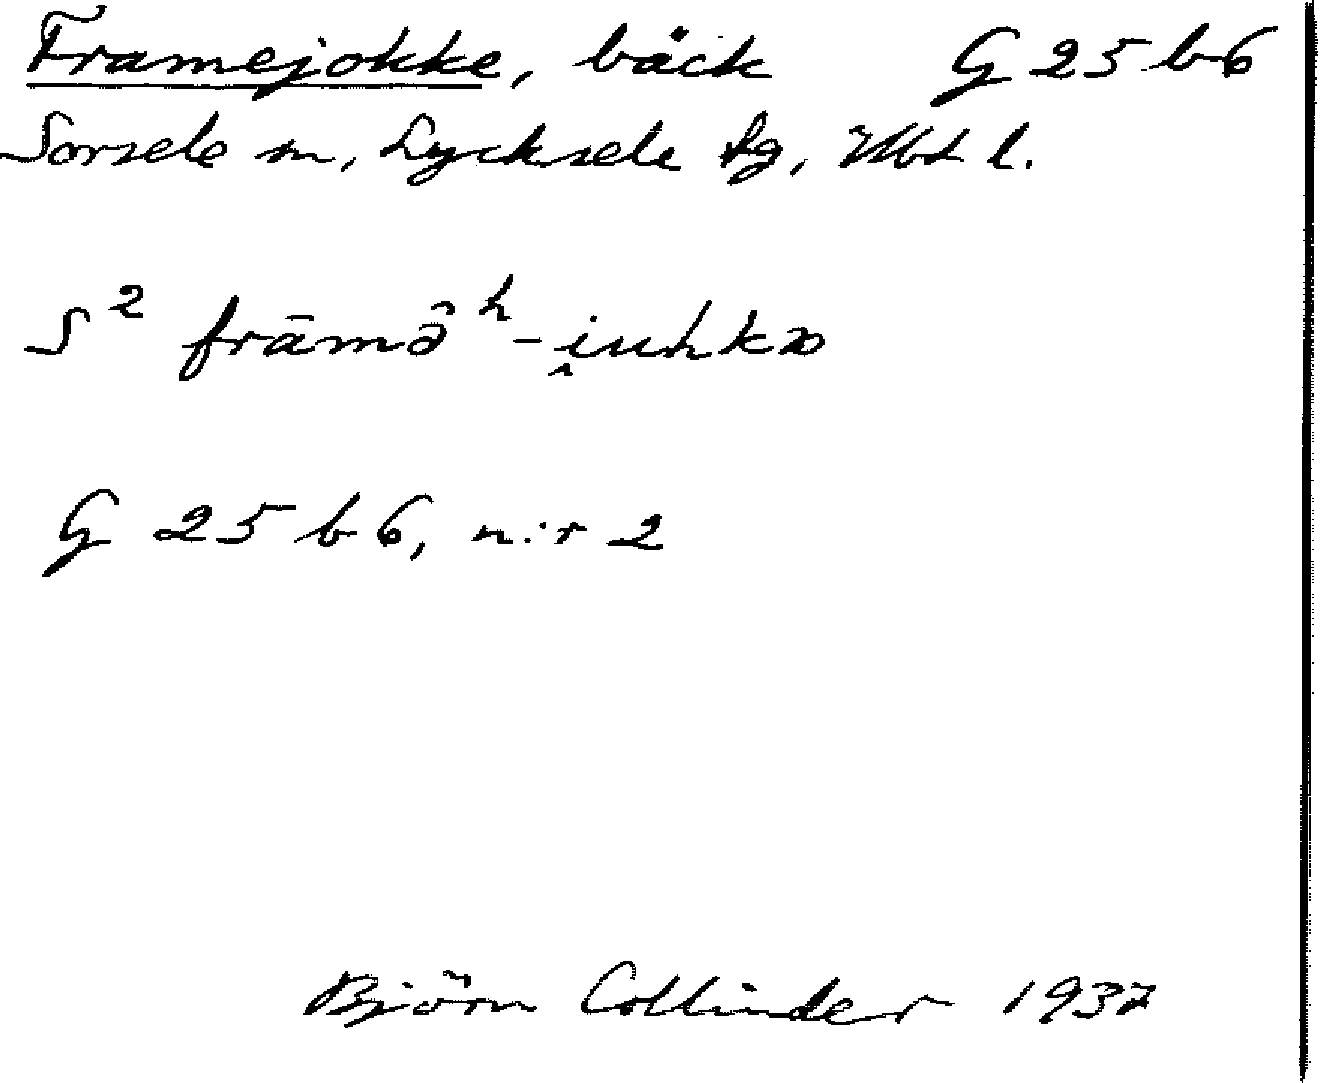 Framejokke, bäck G 25 b 6
Sorsele sn, Lycksele lg, Vbt l.
S² frāmə̂ʰ-i̭uhkɷ
G 25 b 6, n:r 2
Björn Collinder 1937